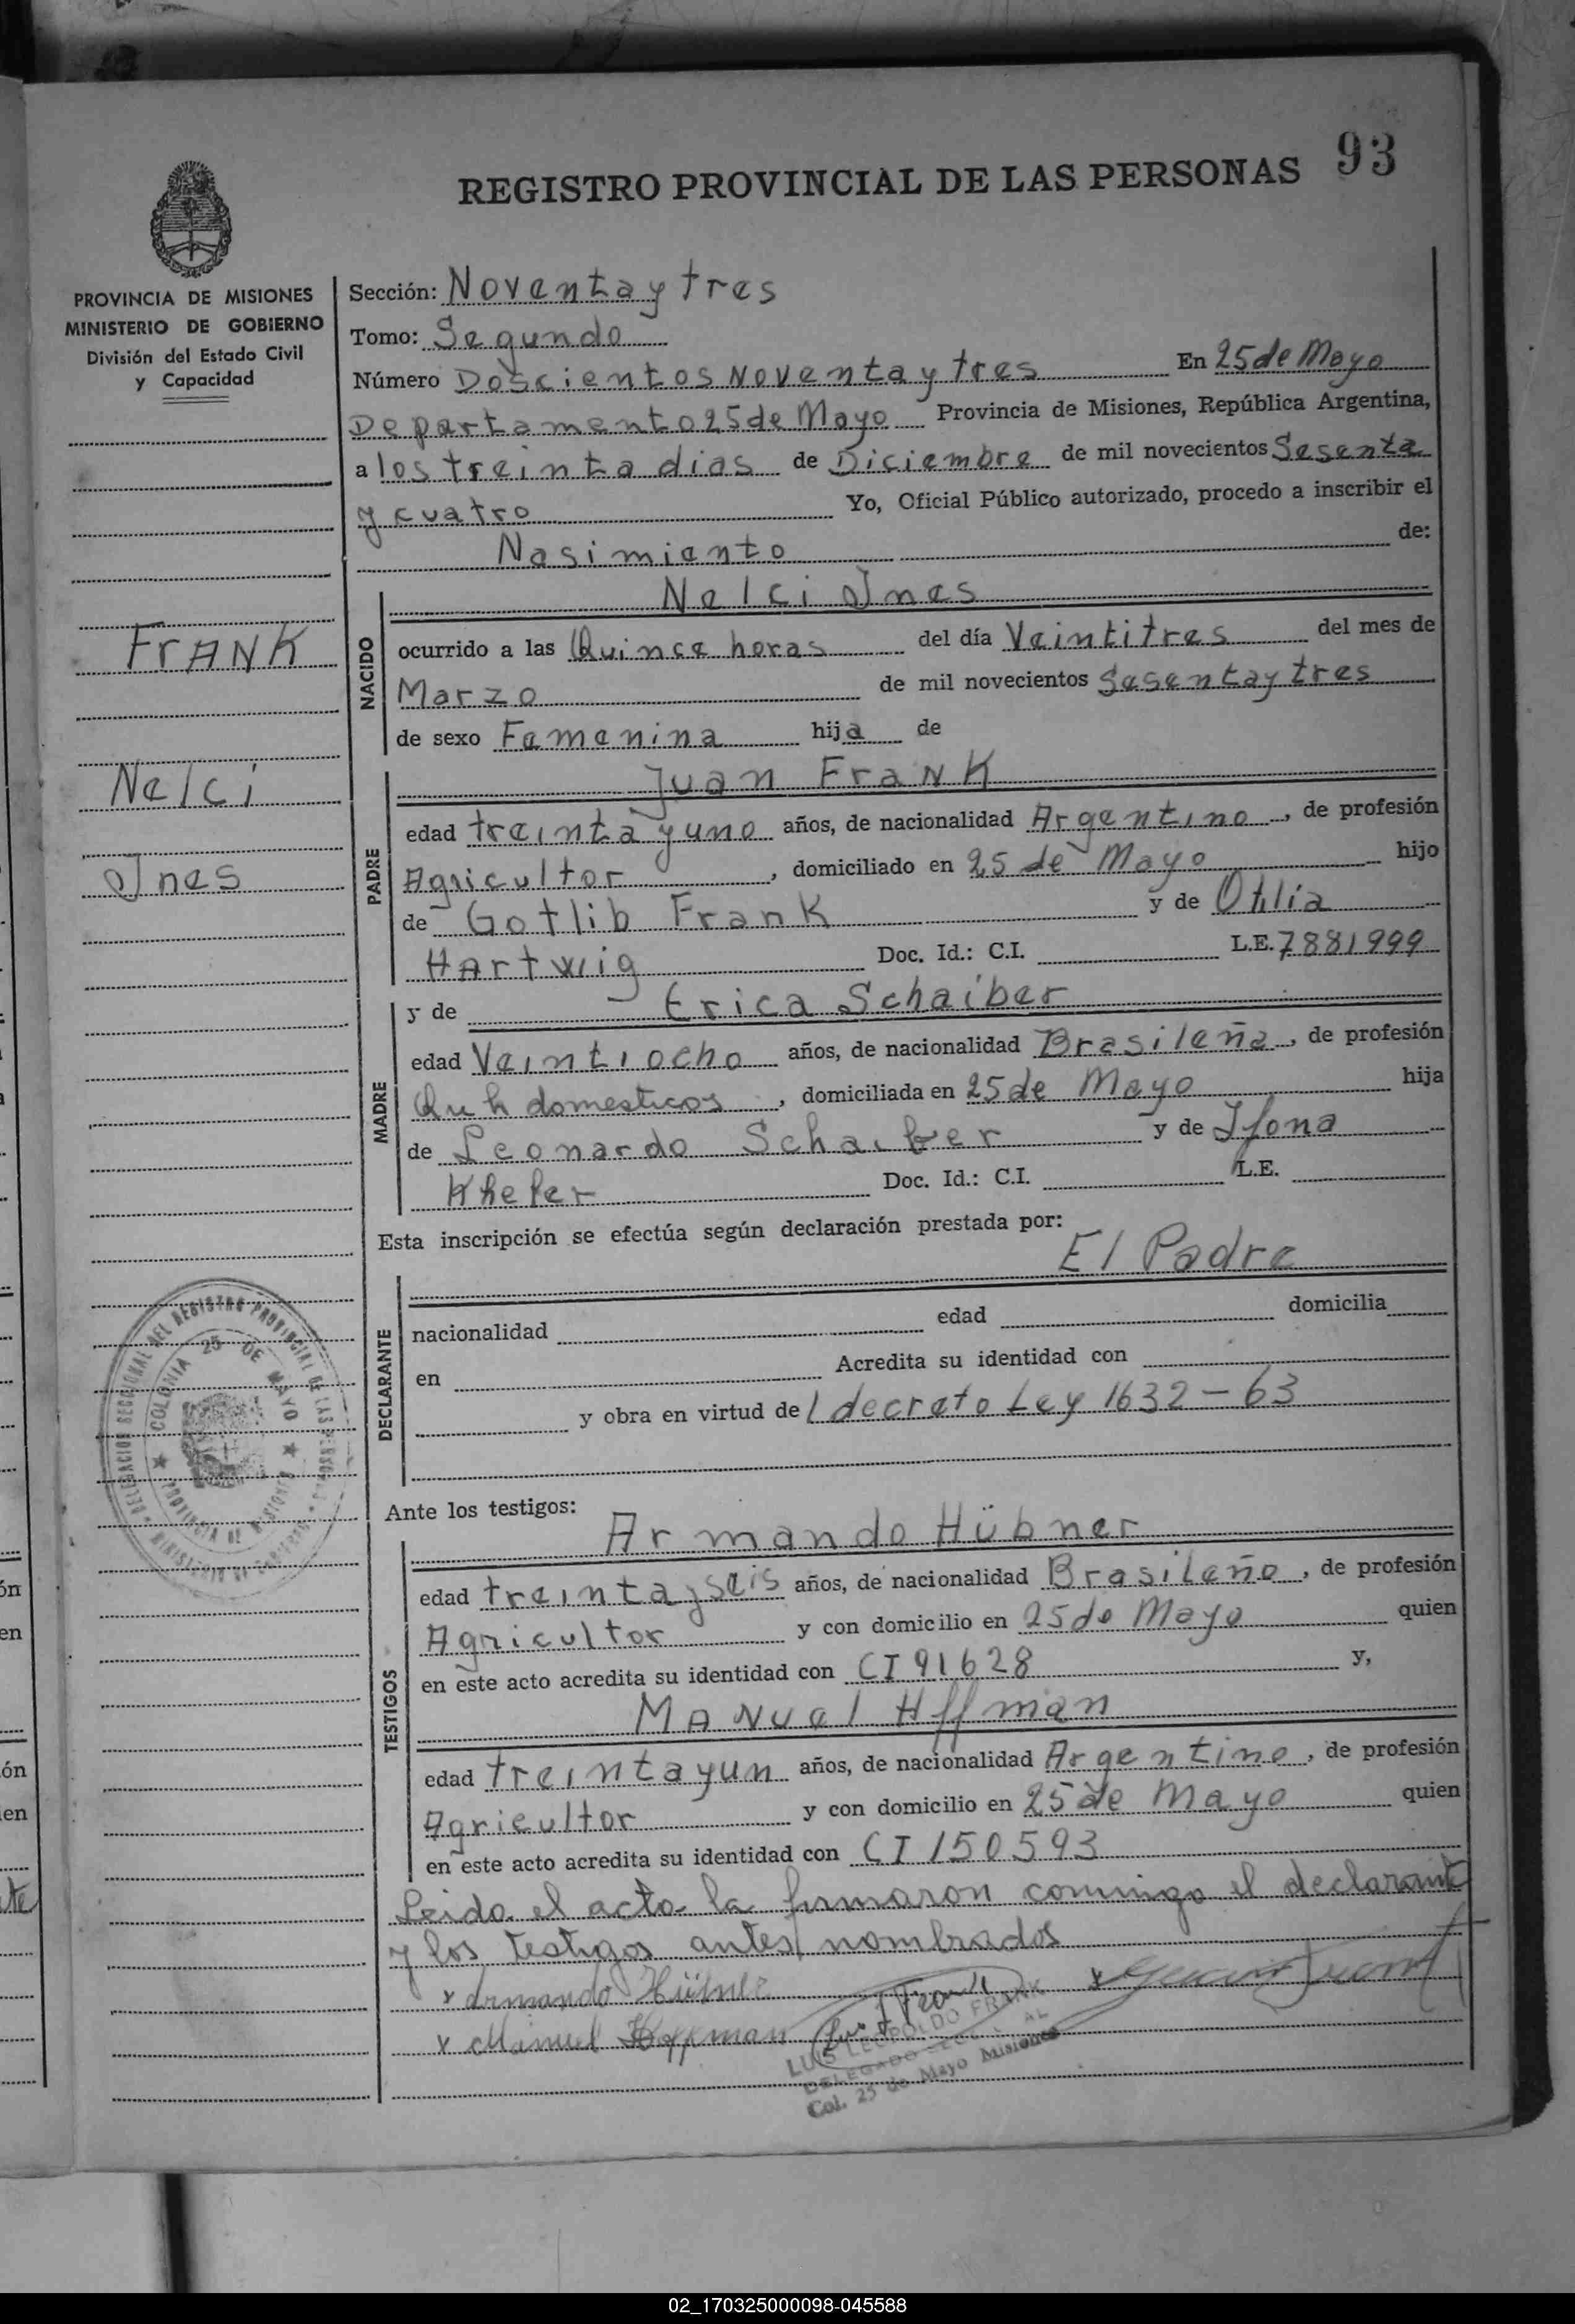 REGISTRO PROVINCIAL DE LAS PERSONAS 93
PROVINCIA DE MISIONES
MINISTERIO DE GOBIERNO
División del Estado Civil
y Capacidad
FrANK
Nelci
Ines
Sección: Noventa y tres
Tomo: Segundo
Número Doscientos Noventa y tres En 25 de Mayo
Departamento 25 de Mayo Provincia de Misiones, República Argentina,
a los treinta dias de Diciembre de mil novecientos Sesenta
y cuatro Yo, Oficial Público autorizado, procedo a inscribir el
Nasimiento de:
NACIDO
Nelci Ines
ocurrido a las Quince horas del día Veintitres del mes de
Marzo de mil novecientos Sesenta y tres
de sexo Femenina hija de
PADRE
Juan Frank
edad treinta y uno años, de nacionalidad Argentino, de profesión
Agricultor, domiciliado en 25 de Mayo hijo
de Gotlib Frank y de Otilia
Hartwig Doc. Id.: C.I. L.E. 7881999
MADRE
y de Erica Schaiber
edad Veintiocho años, de nacionalidad Brasileña, de profesión
Queh domesticos, domiciliada en 25 de Mayo hija
de Leonardo Schaiber y de
Doc. Id.: C.I. L.E.
Esta inscripción se efectúa según declaración prestada por:
El Padre
DECLARANTE
nacionalidad edad domicilia
en Acredita su identidad con
y obra en virtud del decreto Ley 1632-63
Ante los testigos:
TESTIGOS
Armando Hübner
edad treinta y seis años, de nacionalidad Brasileño, de profesión
Agricultor y con domicilio en 25 de Mayo quien
en este acto acredita su identidad con CI 91628 y,
MANuel Hffman
edad treinta y un años, de nacionalidad Argentino, de profesión
Agricultor y con domicilio en 25 de Mayo quien
en este acto acredita su identidad con CI 150593
Leida el acta la firmaron conmigo el declarante
y los testigos antes nombrados
x Armando Hübner
x Manuel Hoffman
LUIS LEOPOLDO FRANK
DELEGADO
Col. 25 de Mayo Misiones
DELEGACION SECCIONAL DEL REGISTRO PROVINCIAL DE LAS PERSONAS
COLONIA 25 DE MAYO
PROVINCIA DE MISIONES
MINISTERIO DE GOBIERNO
02_170325000098-045588